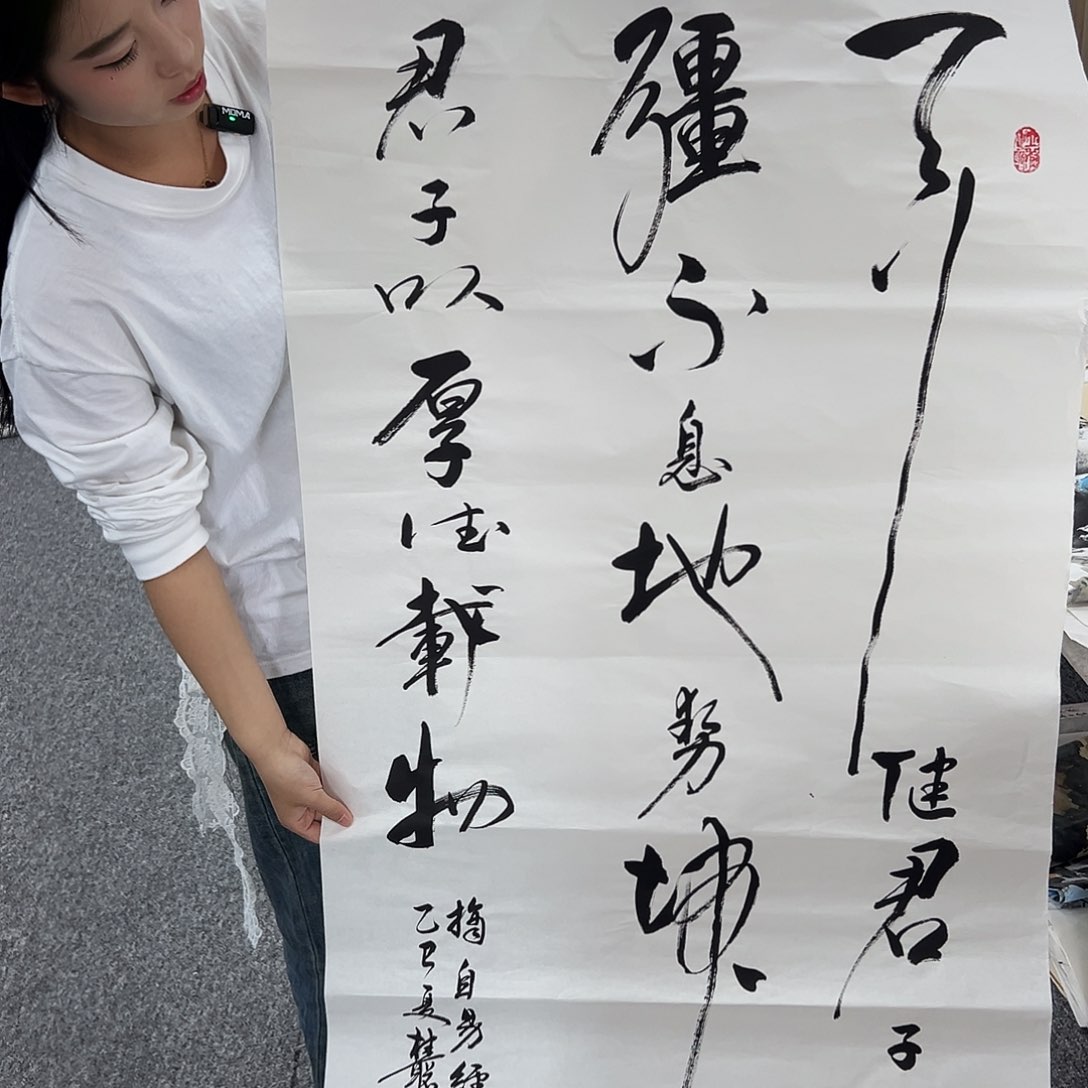 天行健君子
彊不息地势坤
君子以厚德載物
摘自易經
乙巳夏
MOMA